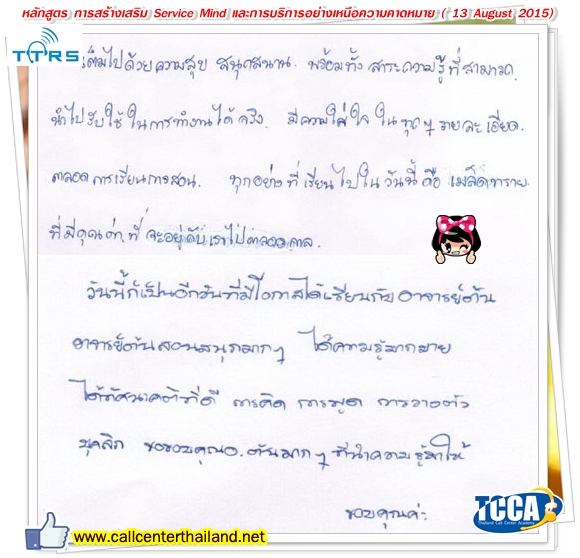 หลักสูตร การสร้างเสริม Service Mind และการบริการอย่างเหนือความคาดหมาย ( 13 August 2015)
TTRS
เต็มไปด้วยความสุข สนุกสนาน. พร้อมทั้ง สาระความรู้ที่สามารถ
นำไปรับใช้ ในการทำงานได้ จริง. มีความใส่ใจ ในทุกๆ รายละเอียด.
ตลอดการเรียนการสอน. ทุกอย่าง ที่เรียนไปใน วันนี้ คือ เมล็ดทราย
ที่มีคุณค่า ที่ จะอยู่กับเราไปตลอดกาล.
วันนี้ก็เป็นอีกวันที่มีโอกาสได้เรียนกับ อาจารย์ต้น
อาจารย์ต้นสอนสนุกมากๆ ได้ความรู้มากมาย
ได้ทัศนาคติที่ดี การคิด การพูด การวางตัว
บุคลิก ขอขอบคุณอ.ต้นมากๆ ที่นำความรู้มาให้
ขอบคุณค่ะ
Like
www.callcenterthailand.net
TCCA
Thailand Call Center Academy